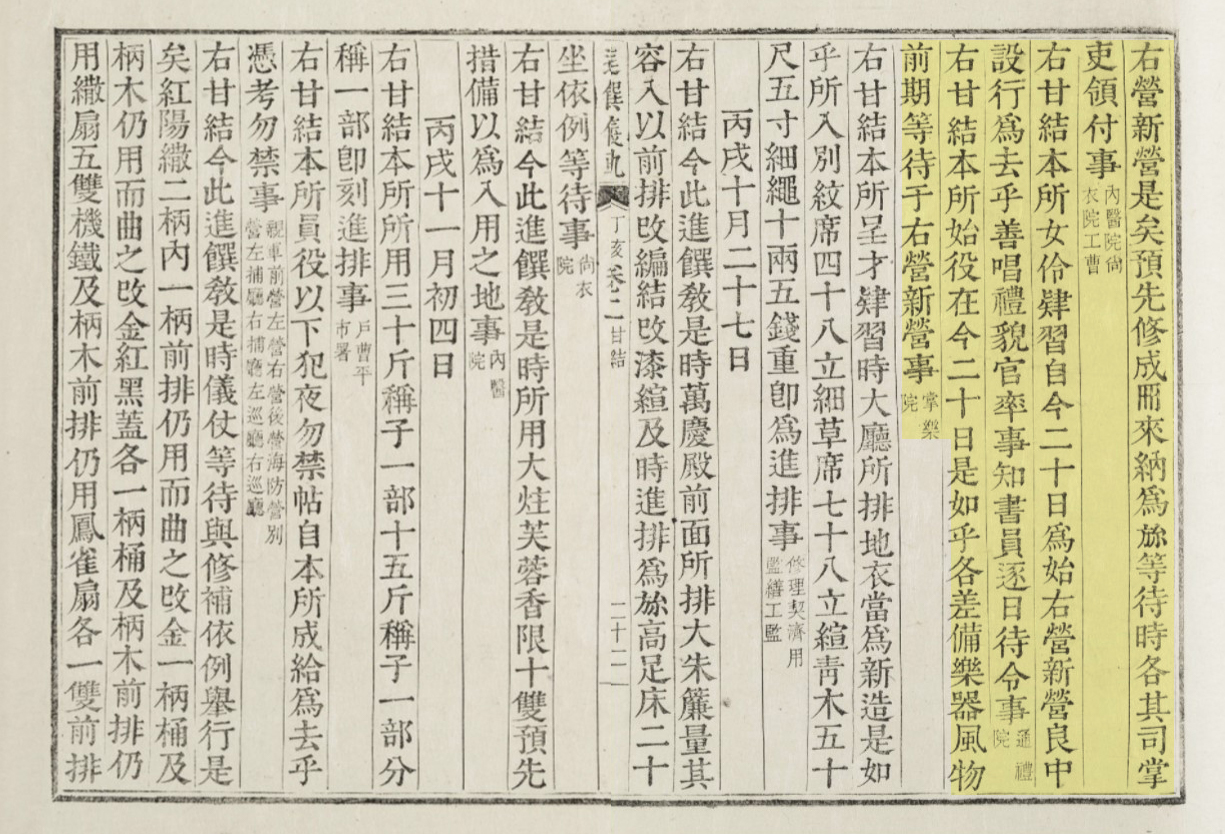 右營新營是矣預先修成冊來納爲旀等待時各其司掌
吏領付事 內醫院尙衣院工曹
右甘結本所女伶肄習自今二十日爲始右營新營良中
設行爲去乎善唱禮貌官率事知書員逐日待令事 通禮院
右甘結本所始役在今二十日是如乎各差備樂器風物
前期等待于右營新營事 掌樂院
右甘結本所呈才肄習時大廳所排地衣當爲新造是如
乎所入別紋席四十八立細草席七十八立縇靑木五十
尺五寸細繩十兩五錢重卽爲進排事 修理契濟用監繕工監
丙戌十月二十七日
右甘結今此進饌敎是時萬慶殿前面所排大朱簾量其
容入以前排改編結改漆縇及時進排爲旀高足床二十
進饌儀軌 丁亥 卷二 甘結 二十二
坐依例等待事 尙衣院
右甘結今此進饌敎是時所用大炷芙蓉香限十雙預先
措備以爲入用之地事 內醫院
丙戌十一月初四日
右甘結本所所用三十斤稱子一部十五斤稱子一部分
稱一部卽刻進排事 戶曹平市署
右甘結本所員役以下犯夜勿禁帖自本所成給爲去乎
憑考勿禁事 親軍前營左營右營後營海防營別營左捕廳右捕廳左巡廳右巡廳
右甘結今此進饌敎是時儀仗等待與修補依例擧行是
矣紅陽繖二柄內一柄前排仍用而曲之改金一柄桶及
柄木仍用而曲之改金紅黑蓋各一柄桶及柄木前排仍
用繖扇五雙機鐵及柄木前排仍用鳳雀扇各一雙前排